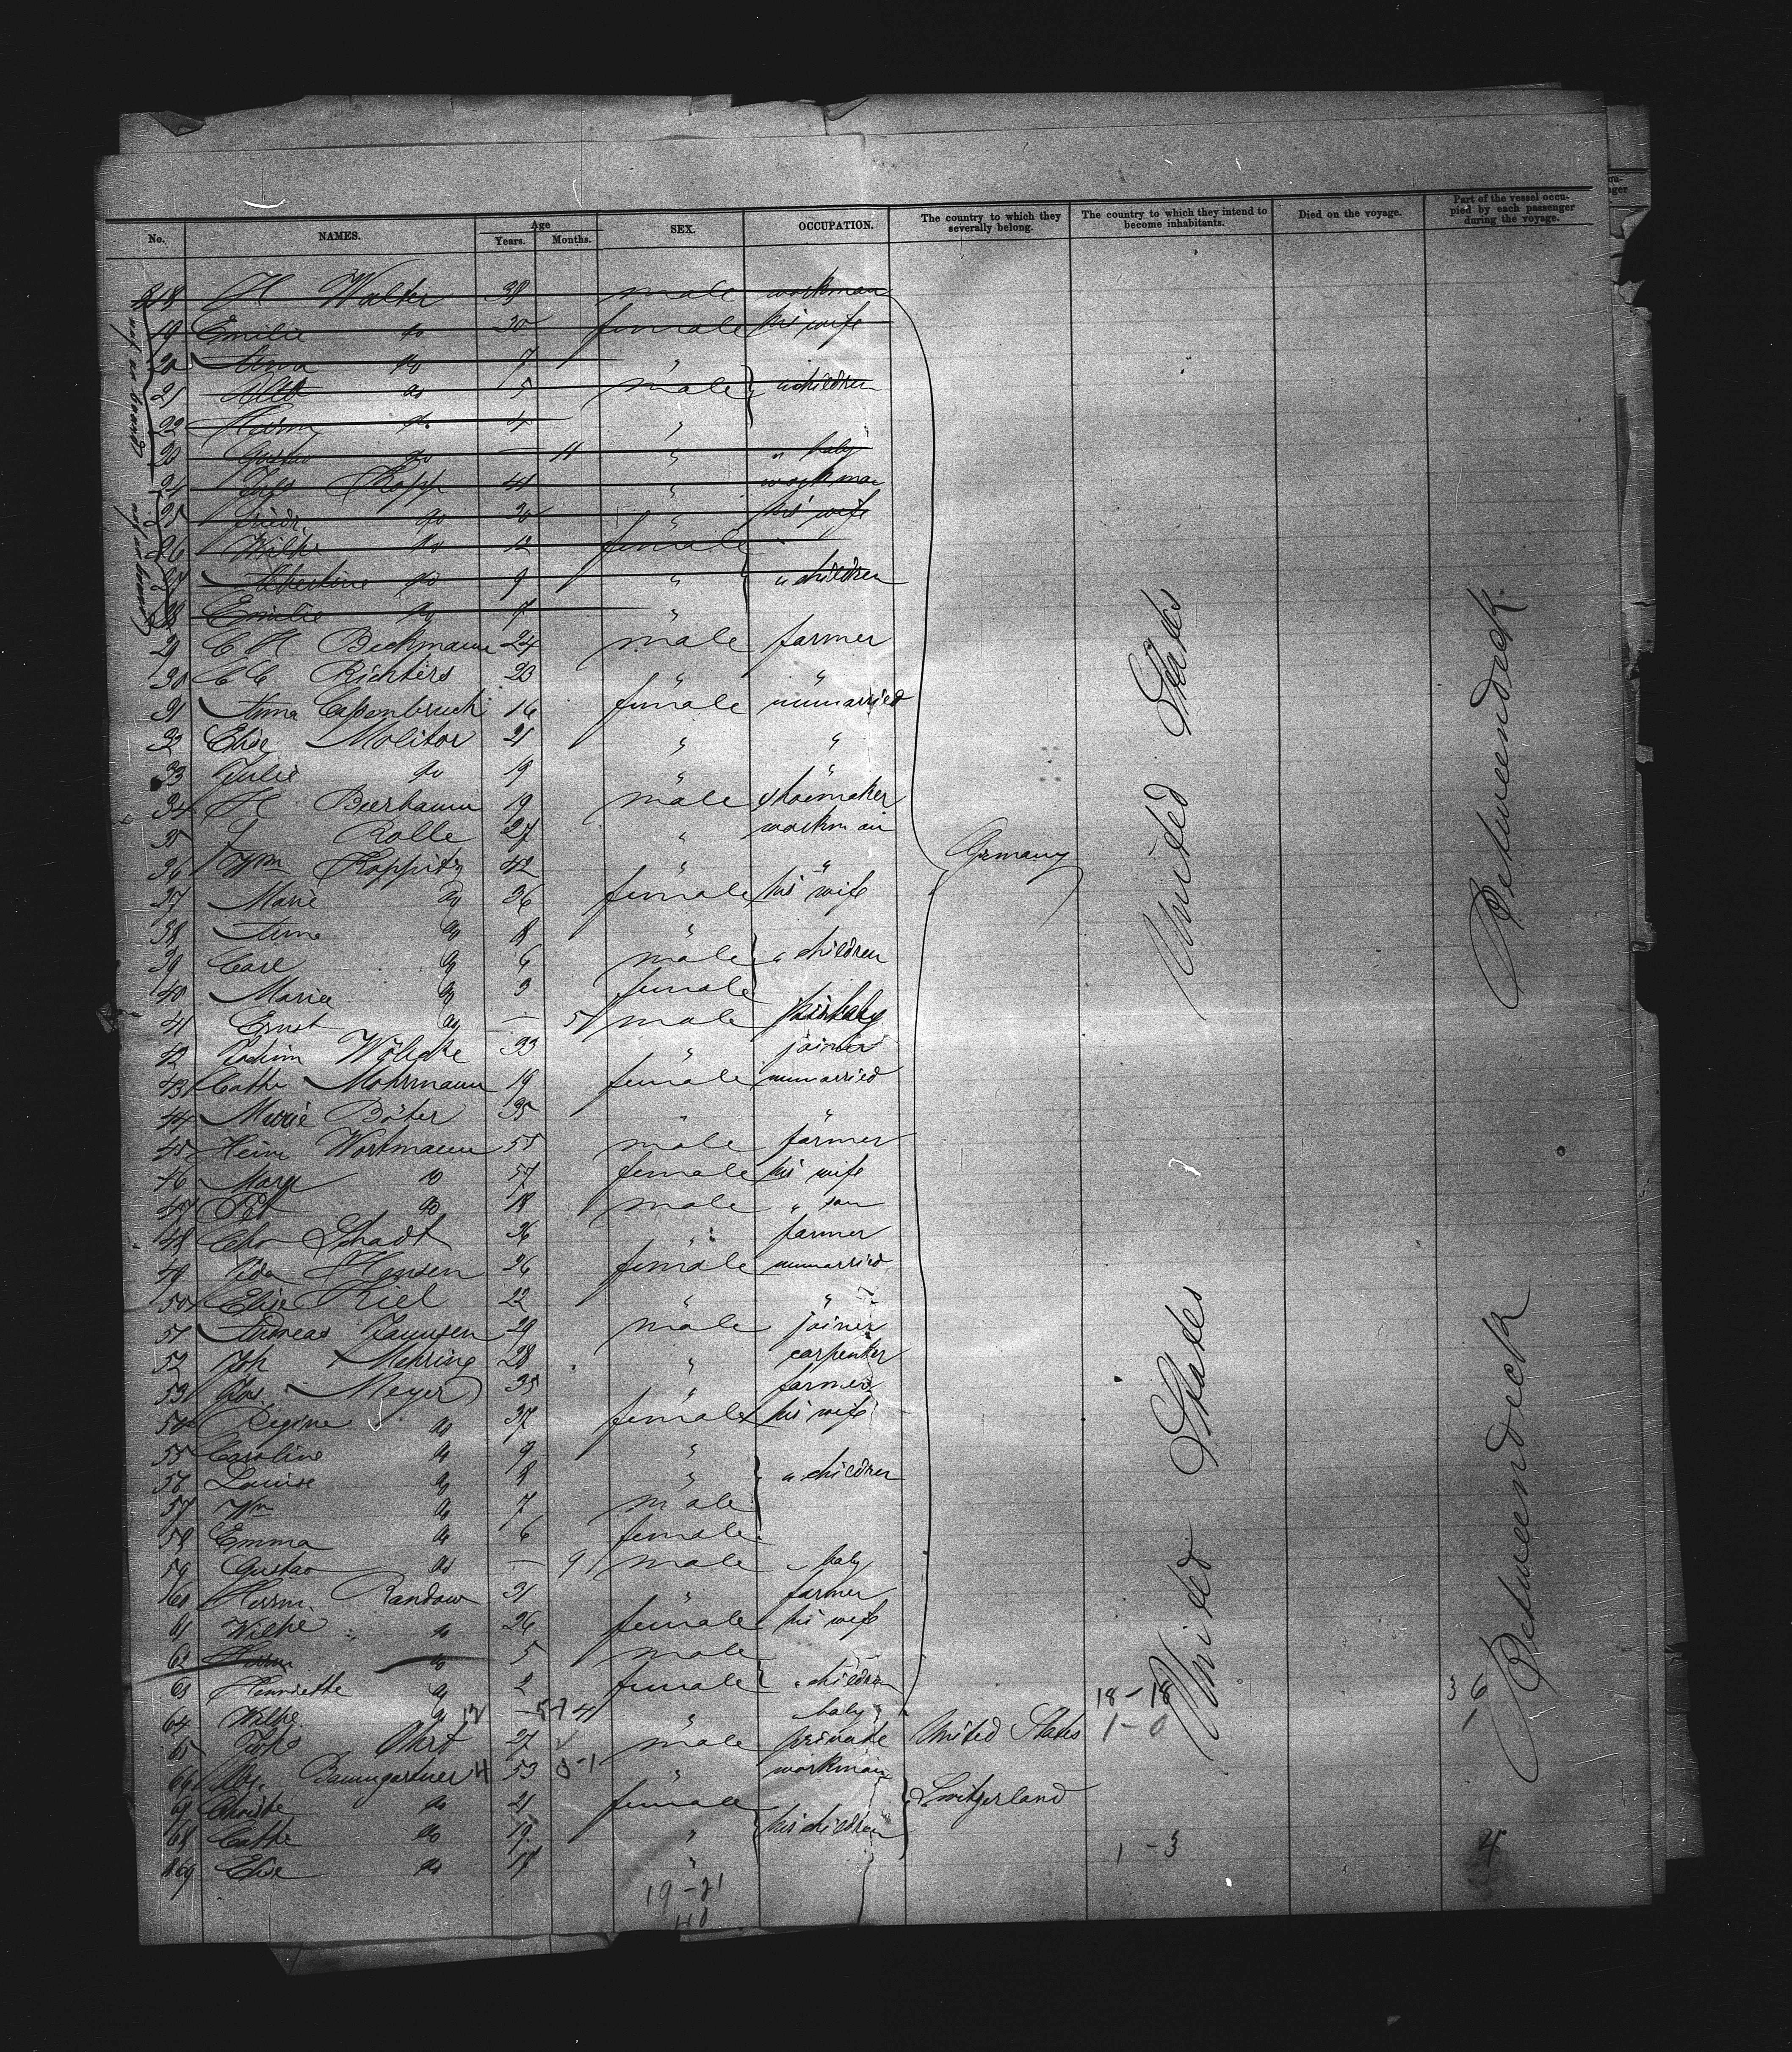 No. NAMES. Age Years. Months. SEX. OCCUPATION. The country to which they severally belong. The country to which they intend to become inhabitants. Died on the voyage. Part of the vessel occupied by each passenger during the voyage.
not on board
not on board
318 H Walter 38 male workman
19 Emilie do 30 female his wife
20 Anna do 7 "
21 do 5 male " children
22 Herm do 4 "
23 Gustav do — 11 " " baby
24 Rapp 41 " workman
25 Friedr. do 30 " his wife
26 Wilhe do 12 female
27 Albertine do 9 " " children
28 Emilie do 7 "
29 C H Beckmann 24 male farmer
30 C C Richters 23 " "
31 Anna 16 female unmarried
32 Elise Molitor 21 " "
33 Julie do 19 " "
34 H Beerbaum 19 male shoemaker
35 Rolle 27 " workman
36 Wm Koppitz 42 " "
37 Marie do 36 female his wife
38 Anna do 8 "
39 Carl do 6 male " children
40 Maria do 3 female
41 Ernst do — 5 male his baby
42 Jochim 33 " joiner
43 Cathe Mohrmann 19 female unmarried
44 Marie Böter 35 " "
45 Heinr Wortmann 55 male farmer
46 Marg do 57 female his wife
47 Pet do 18 male " son
48 Schadt 36 " farmer
49 Ida Hansen 26 female unmarried
50 Elise Kiel 22 " "
51 Andreas Jannsen 29 male joiner
52 Joh Mehring 28 " carpenter
53 Jos. Meyer 35 " farmer
54 Regine do 37 female his wife
55 Caroline do 9 "
56 Louise do 8 " " children
57 Wm do 7 male
58 Emma do 6 female
59 Gustav do — 9 male " baby
60 Herrm. Randow 31 " farmer
61 Wilhe do 26 female his wife
62 Herrm do 5 male
63 Henriette do 2 female " children
64 Wilhe do 12 — 5-7 4 " baby
65 27 male private United States
66 Baumgartner 4 53 0-1 " workman
67 Christe do 21 female Switzerland
68 Cathe do 19 " his children
869 Elise do 17 "
Germany
United States
United States
Betweendeck
Betweendeck
18-18
1-0
1-3
36
1
4
19-21
40